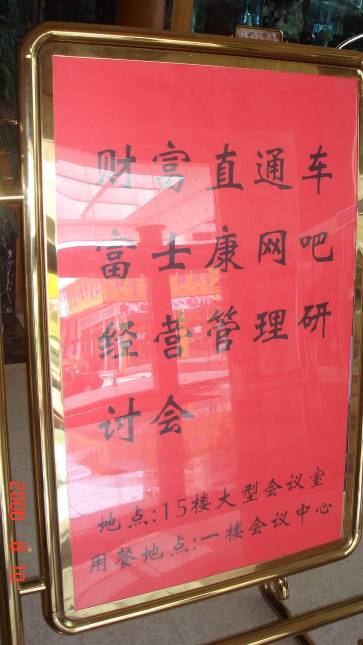 财富直通车
富士康网吧
经营管理研
讨会
地点:15楼大型会议室
用餐地点:一楼会议中心